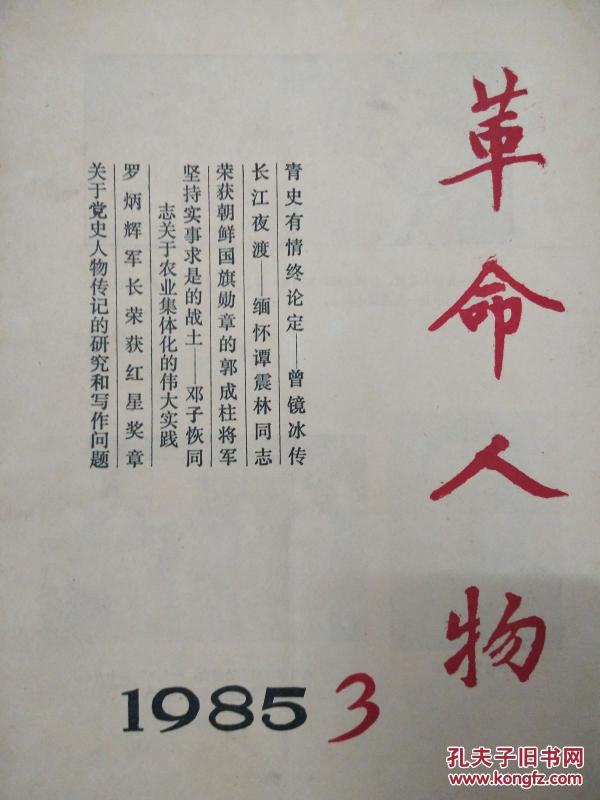 革命人物
青史有情终论定——曾镜冰传
长江夜渡——缅怀谭震林同志
荣获朝鲜国旗勋章的郭成柱将军
坚持实事求是的战士——邓子恢同
志关于农业集体化的伟大实践
罗炳辉军长荣获红星奖章
关于党史人物传记的研究和写作问题
1985 3
孔夫子旧书网
www.kongfz.com